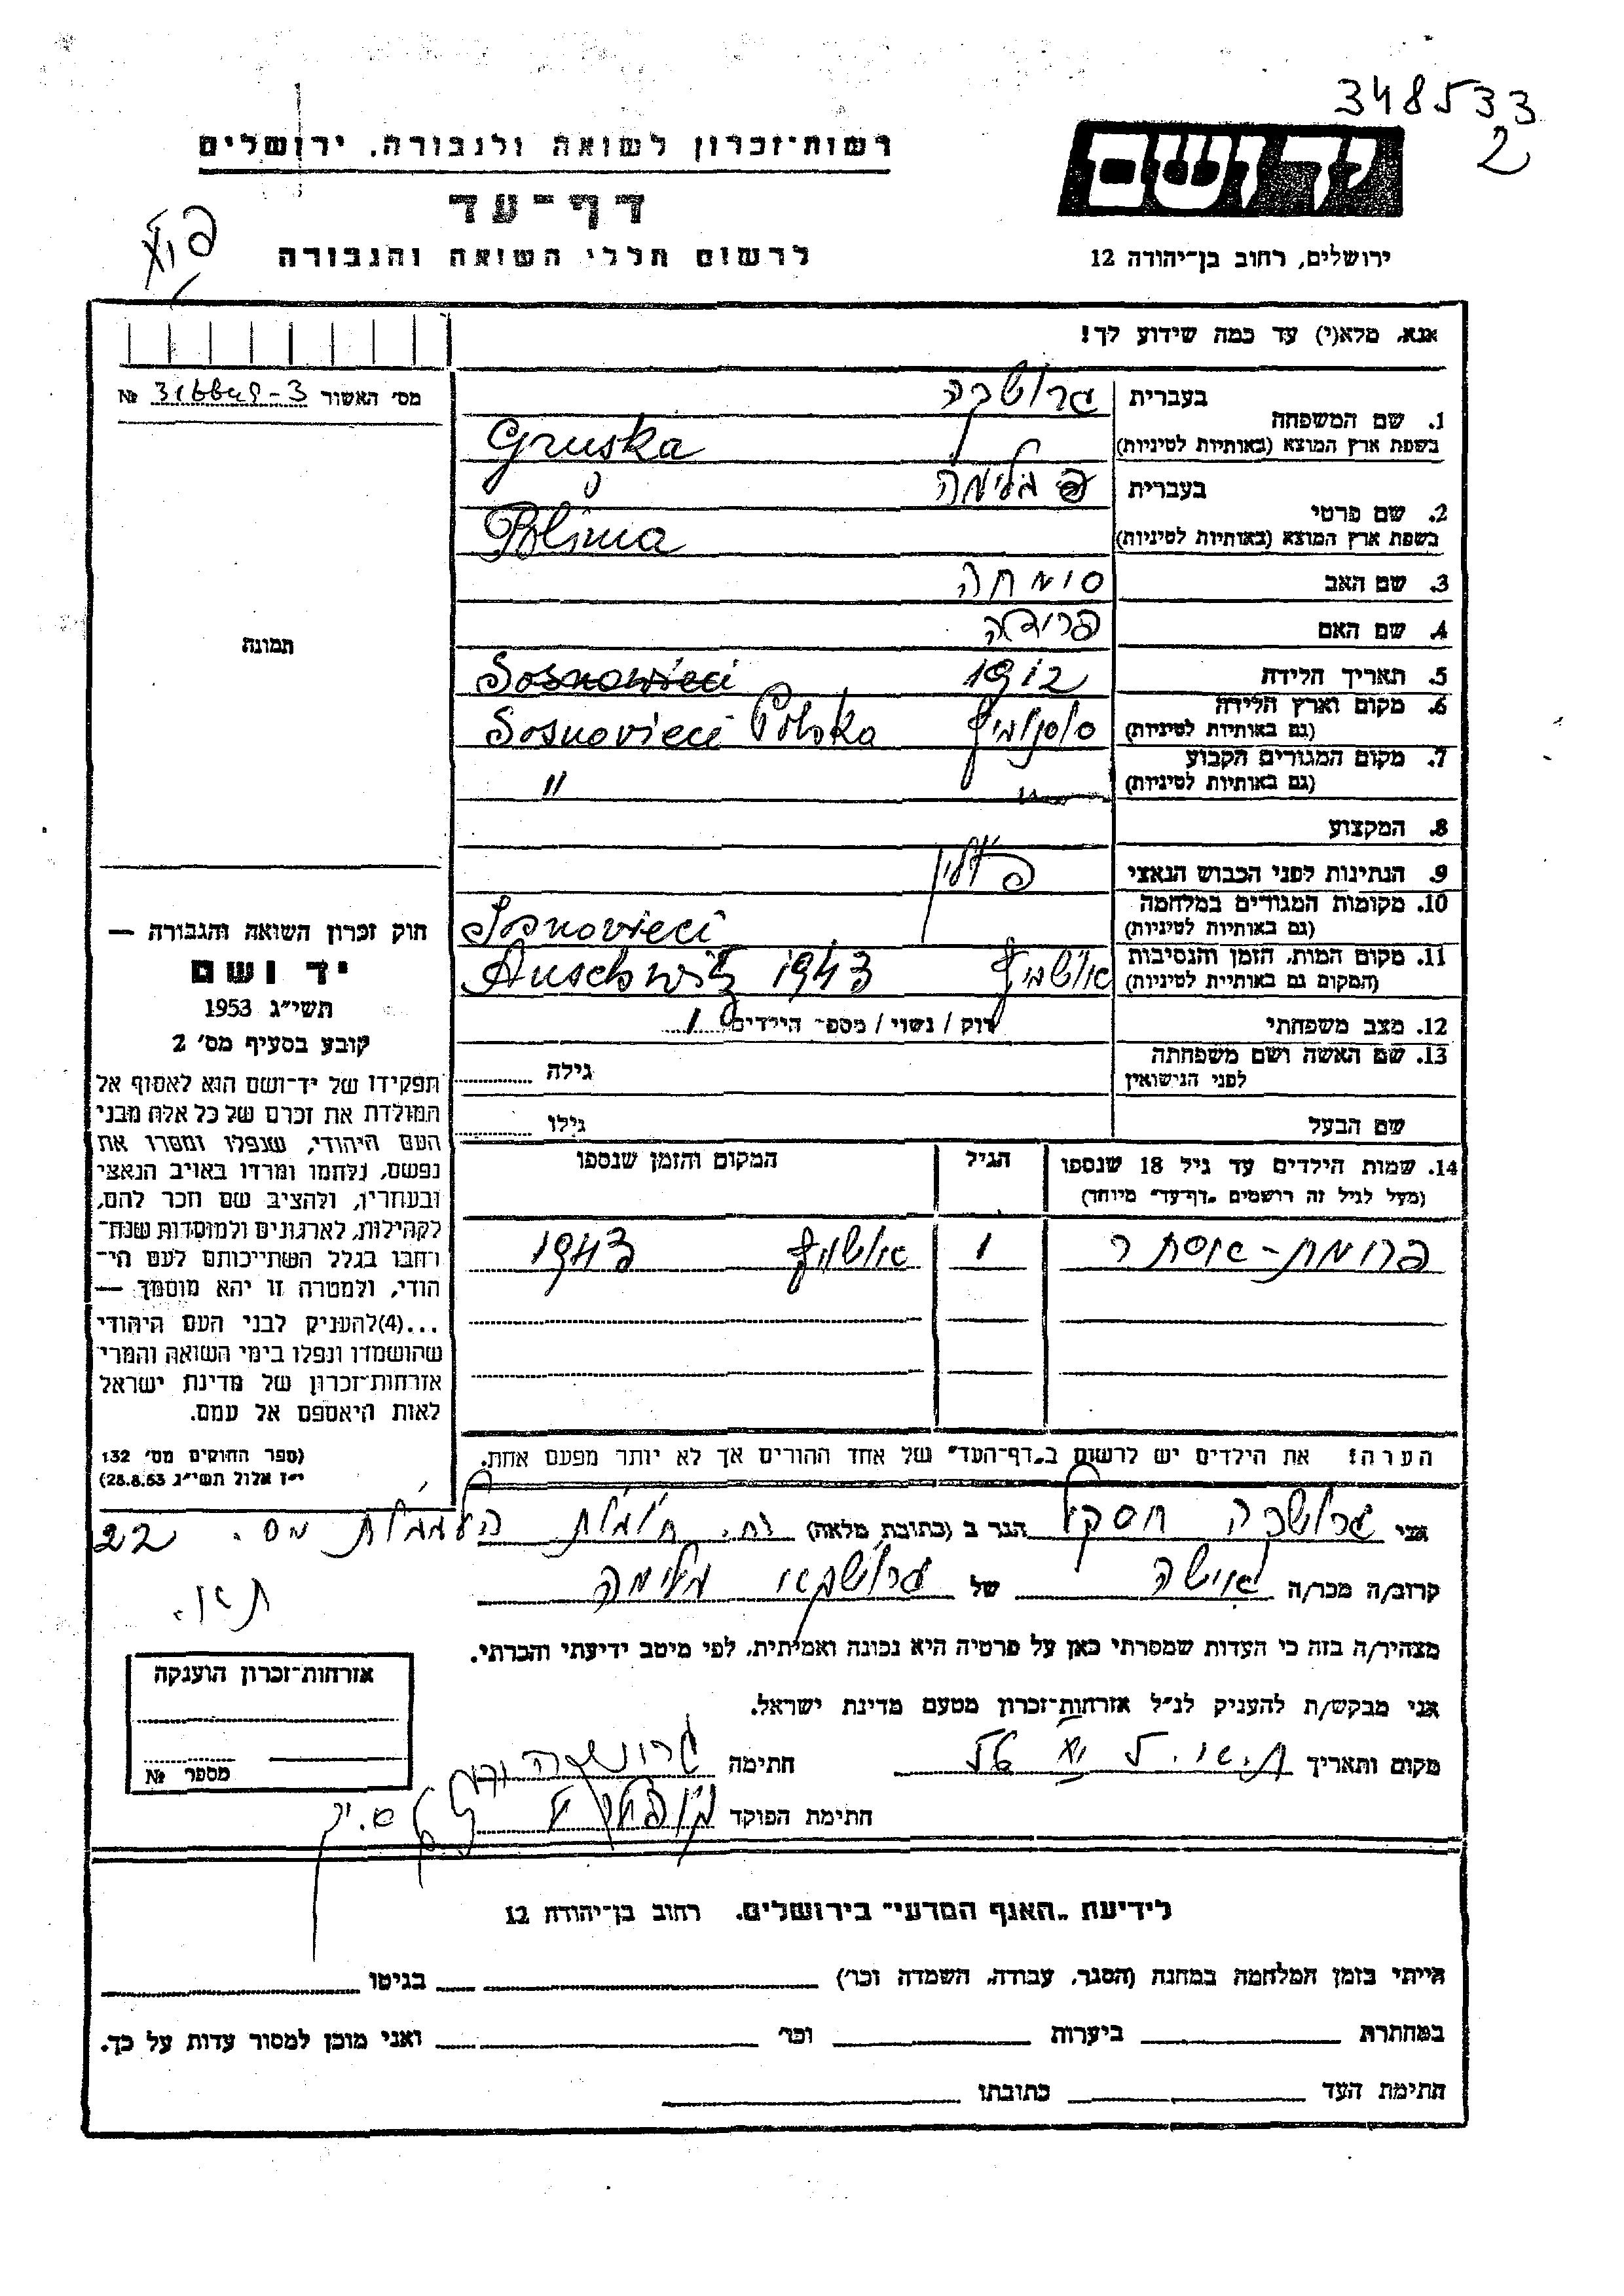 348533
2
יד ושם
רשות־זכרון לשואה ולגבורה, ירושלים
דף־עד
לרשום חללי השואה והגבורה
ירושלים, רחוב בן־יהודה 12
אנא, מלא(י) עד כמה שידוע לך!
מס׳ האשור №
1. שם המשפחה
בעברית גרושקה
בשפת ארץ המוצא (באותיות לטיניות) Gruska
2. שם פרטי
בעברית
בשפת ארץ המוצא (באותיות לטיניות)
3. שם האב סימחה
4. שם האם פרידה
5. תאריך הלידה 1912 Sosnowieci
6. מקום וארץ הלידה
(גם באותיות לטיניות) Sosnovieci Polska
7. מקום המגורים הקבוע
(גם באותיות לטיניות) "
8. המקצוע
9. הנתינות לפני הכבוש הנאצי
10. מקומות המגורים במלחמה
(גם באותיות לטיניות) Sosnovieci
11. מקום המות, הזמן והנסיבות
(המקום גם באותיית לטיניות) אושביץ 1943
12. מצב משפחתי רוק / נשוי / מספ־ הילדים 1
13. שם האשה ושם משפחתה
לפני הנישואין גילה
שם הבעל גילו
14. שמות הילדים עד גיל 18 שנספו
(מעל לגיל זה רושמים „דף־עד״ מיוחד)
הגיל
המקום והזמן שנספו
פרומת-אסתר 1 1943
הערה: את הילדים יש לרשום ב„דף־העד״ של אחד ההורים אך לא יותר מפעם אחת.
תמונה
חוק זכרון השואה והגבורה —
יד ושם
תשי״ג 1953
קובע בסעיף מס׳ 2
תפקידו של יד־ושם הוא לאסוף אל
המולדת את זכרם של כל אלה מבני
העם היהודי, שנפלו ומסרו את
נפשם, נלחמו ומרדו באויב הנאצי
ובעוזריו, ולהציב שם וזכר להם,
לקהילות, לארגונים ולמוסדות שנח־
רחבו בגלל השתייכותם לעם הי־
הודי, ולמטרה זו יהא מוסמך —
...(4)להעניק לבני העם היהודי
שהושמדו ונפלו בימי השואה והמרי
אזרחות־זכרון של מדינת ישראל
לאות היאספם אל עמם.
(ספר החוקים מס׳ 132
י״ז אלול תשי״ג 28.8.53)
אני גרושקה חסקל הגר ב (כתובת מלאה) רח. חומות מס. 22
תא.
קרוב/ה מכר/ה לאישה של
מצהיר/ה בזה כי העדות שמסרתי כאן על פרטיה היא נכונה ואמיתית, לפי מיטב ידיעתי והכרתי.
אני מבקש/ת להעניק לנ״ל אזרחות־זכרון מטעם מדינת ישראל.
מקום ותאריך חתימה
חתימת הפוקד
אזרחות־זכרון הוענקה
מספר №
לידיעת „האגף המדעי״ בירושלים, רחוב בן־יהודה 12
הייתי בזמן המלחמה במחנה (הסגר, עבודה, השמדה וכר׳) בגיטו
במחתרת ביערות וכר׳ ואני מוכן למסור עדות על כך.
חתימת העד כתובתו